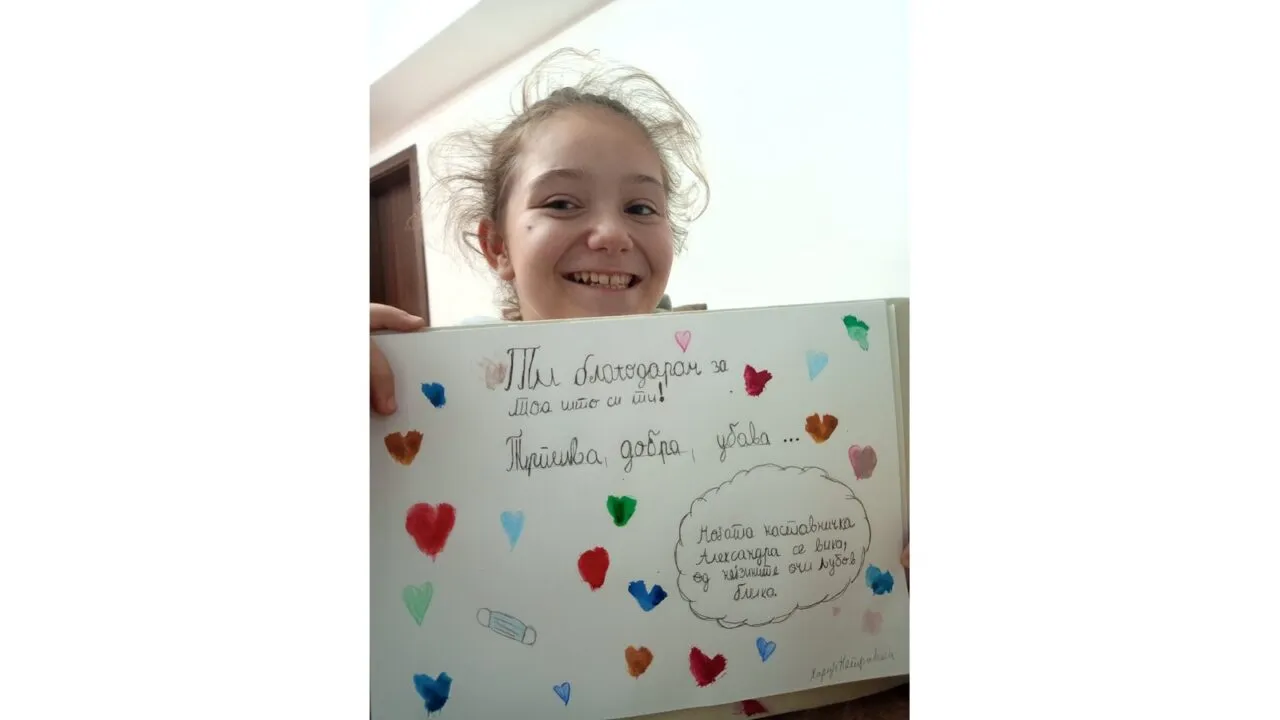 Ти благодарам за
тоа што си ти!
Трпелива, добра, убава ...
Мојата наставничка
Александра се вика,
од нејзините очи љубов
блика.